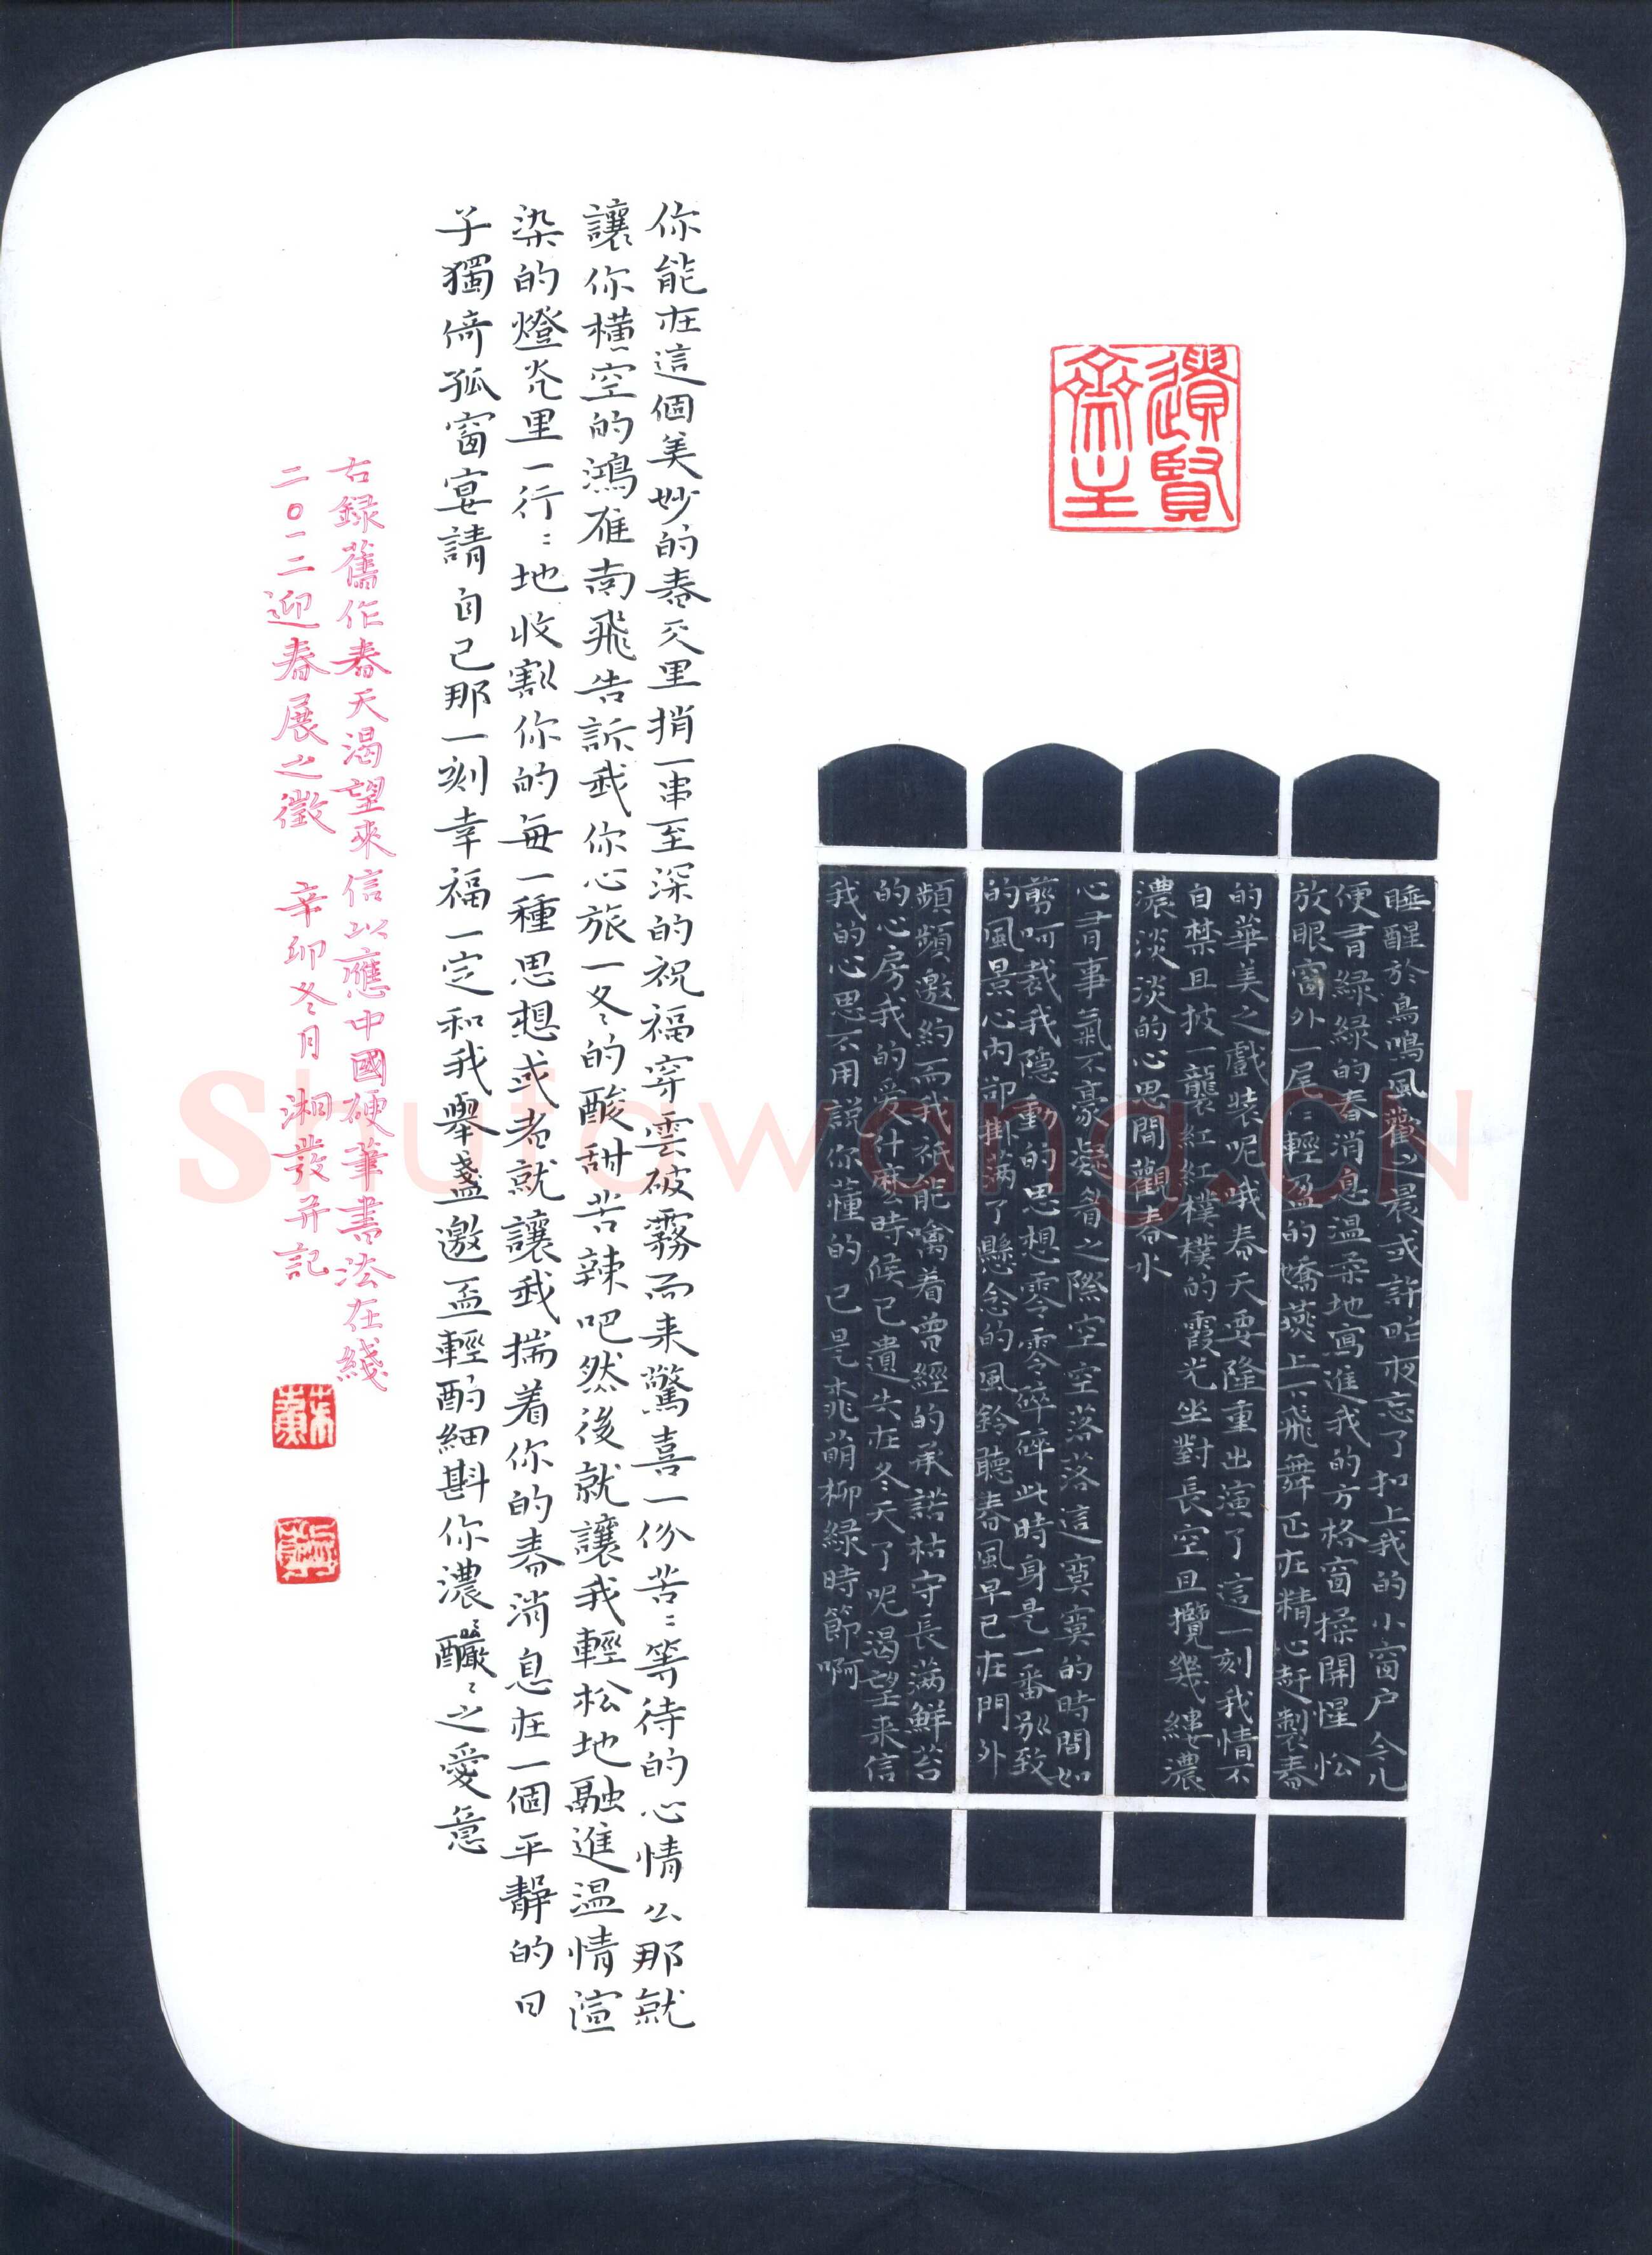 遺賢
齋主
睡醒於鳥鳴風歡之晨或許昨夜忘了扣上我的小窗户今儿
便有綠綠的春消息温柔地寫進我的方格窗揉開惺忪
放眼窗外一尾〻輕盈的嬌燕上下飛舞正在精心趕製春
的華美之戲裝呢哦春天要隆重出演了這一刻我情不
自禁且披一襲紅紅樸樸的霞光坐對長空且攬幾縷濃
濃淡淡的心思閒觀春水
心有事氣不豪凝眉之際空空落落這寞寞的時間如
剪呵裁我隐動的思想零零碎碎此時身是一番别致
的風景心内卻掛满了懸念的風鈴聽春風早已在門外
頻頻邀約而我衹能噙着曾經的承諾枯守長满鮮苔
的心房我的爱什麽時候已遺失在冬天了呢渴望来信
我的心思不用説你懂的已是桃萌柳緑時節啊
你能在這個美妙的春天里捎一串至深的祝福穿雲破霧而来驚喜一份苦〻等待的心情么那就
讓你横空的鴻雁南飛告訴我你心旅一冬的酸甜苦辣吧然後就讓我輕松地融進温情渲
染的燈光里一行〻地收割你的每一種思想或者就讓我揣着你的春消息在一個平靜的日
子獨倚孤窗宴請自己那一刻幸福一定和我舉盞邀盃輕酌細斟你濃釅〻之愛意
右録舊作春天渴望來信以應中國硬筆書法在綫
二〇一二迎春展之徵 辛卯冬月 湘蕠并記
Shufawang.CN